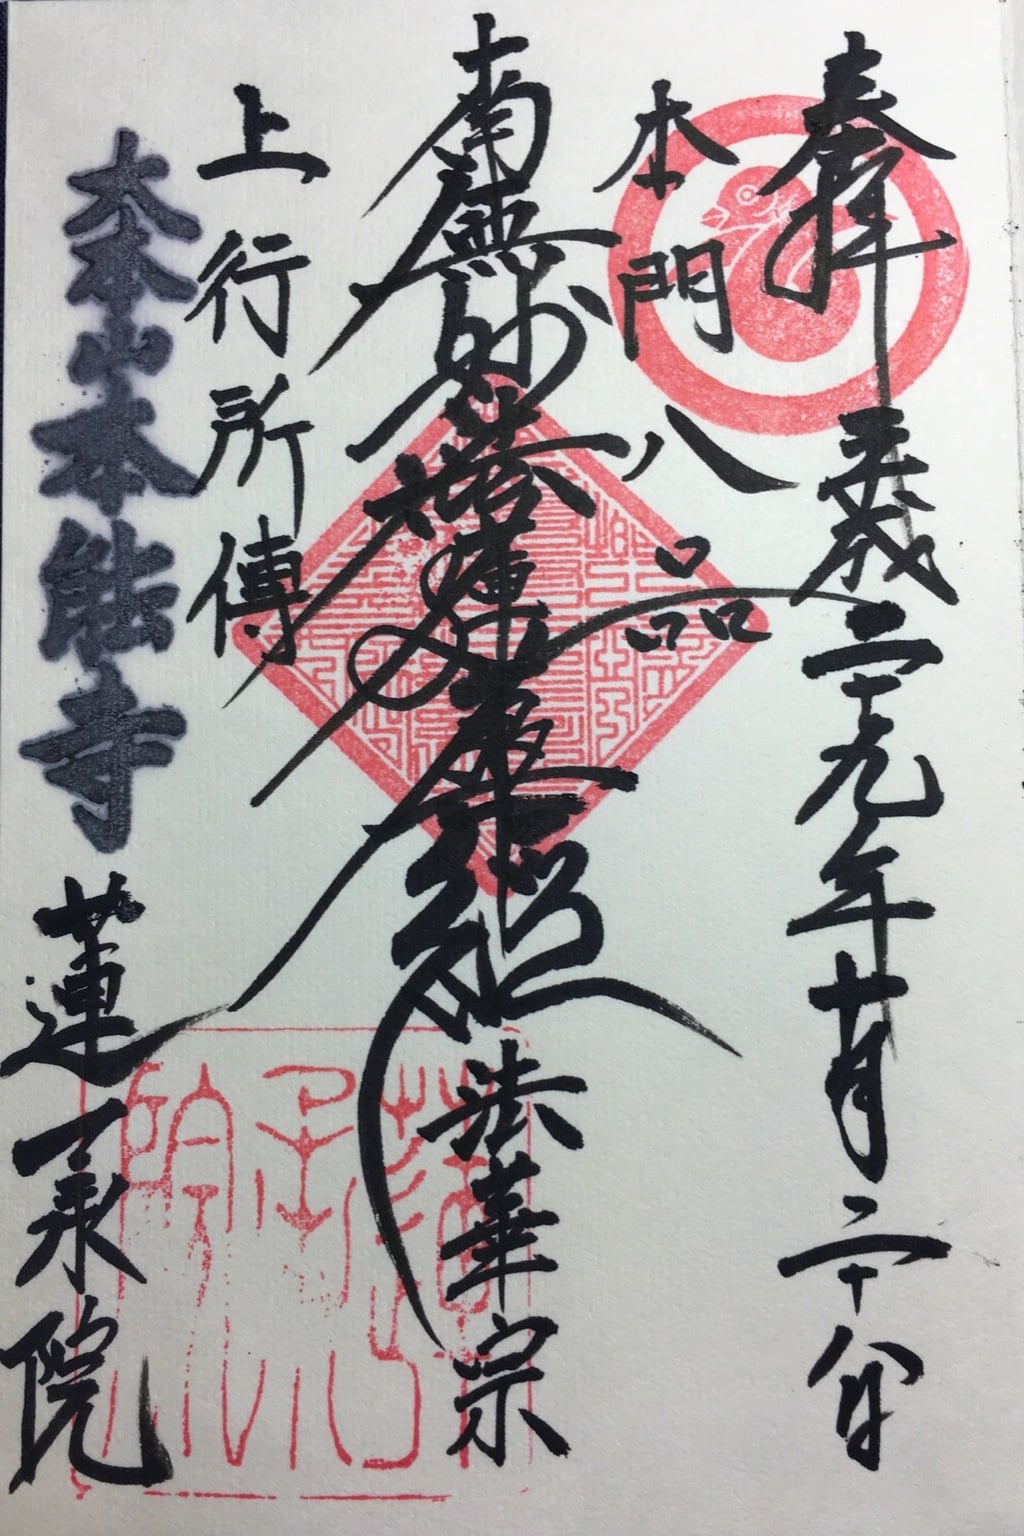 奉拝 平成二十九年十月二十八日
本門八品
南無妙法蓮華経 法華宗
上行所傳
大本山本能寺 蓮承院